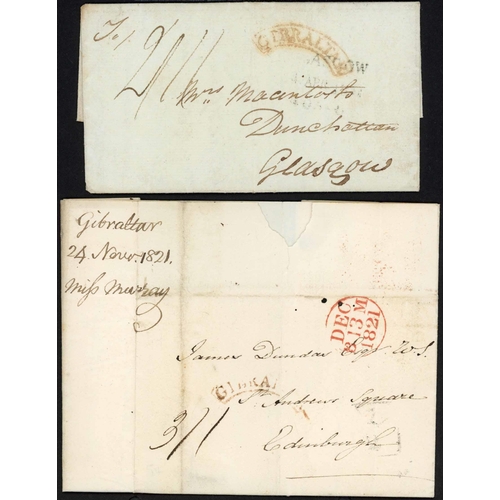 To/.
2/11
GIBRALTAR
Mrs Macintosh
Dunchattan
Glasgow
Gibraltar
24 Novr. 1821.
Miss Murray
DEC
B 13 M
1821
James Dundas Esqr W.S.
GIBRA
St Andrews Square
3/1
Edinburgh